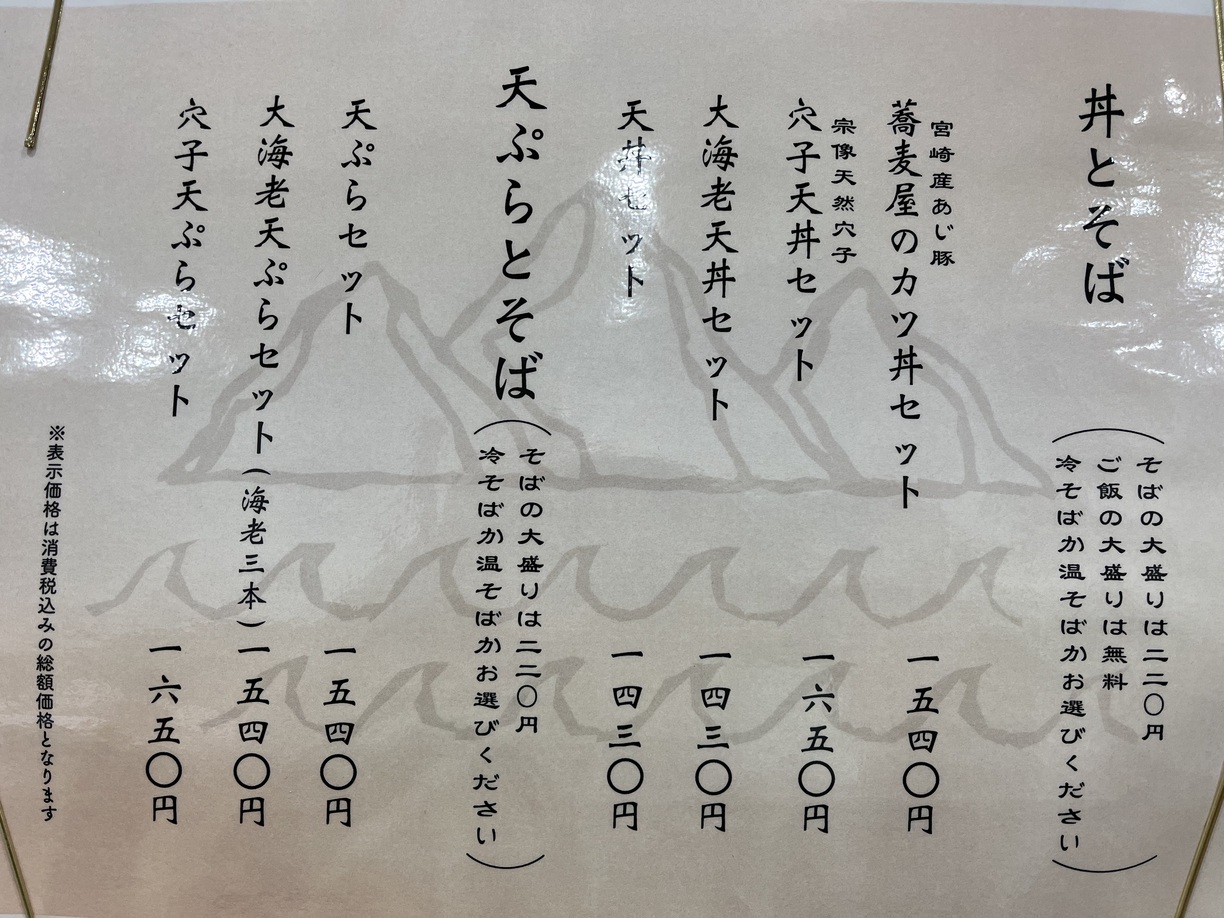 丼とそば
そばの大盛りは二二〇円
ご飯の大盛りは無料
冷そばか温そばかお選びください
宮崎産あじ豚
蕎麦屋のカツ丼セット 一五四〇円
宗像天然穴子
穴子天丼セット 一六五〇円
大海老天丼セット 一四三〇円
天丼セット 一四三〇円
天ぷらとそば
そばの大盛りは二二〇円
冷そばか温そばかお選びください
天ぷらセット 一五四〇円
大海老天ぷらセット(海老三本) 一五四〇円
穴子天ぷらセット 一六五〇円
※表示価格は消費税込みの総額価格となります